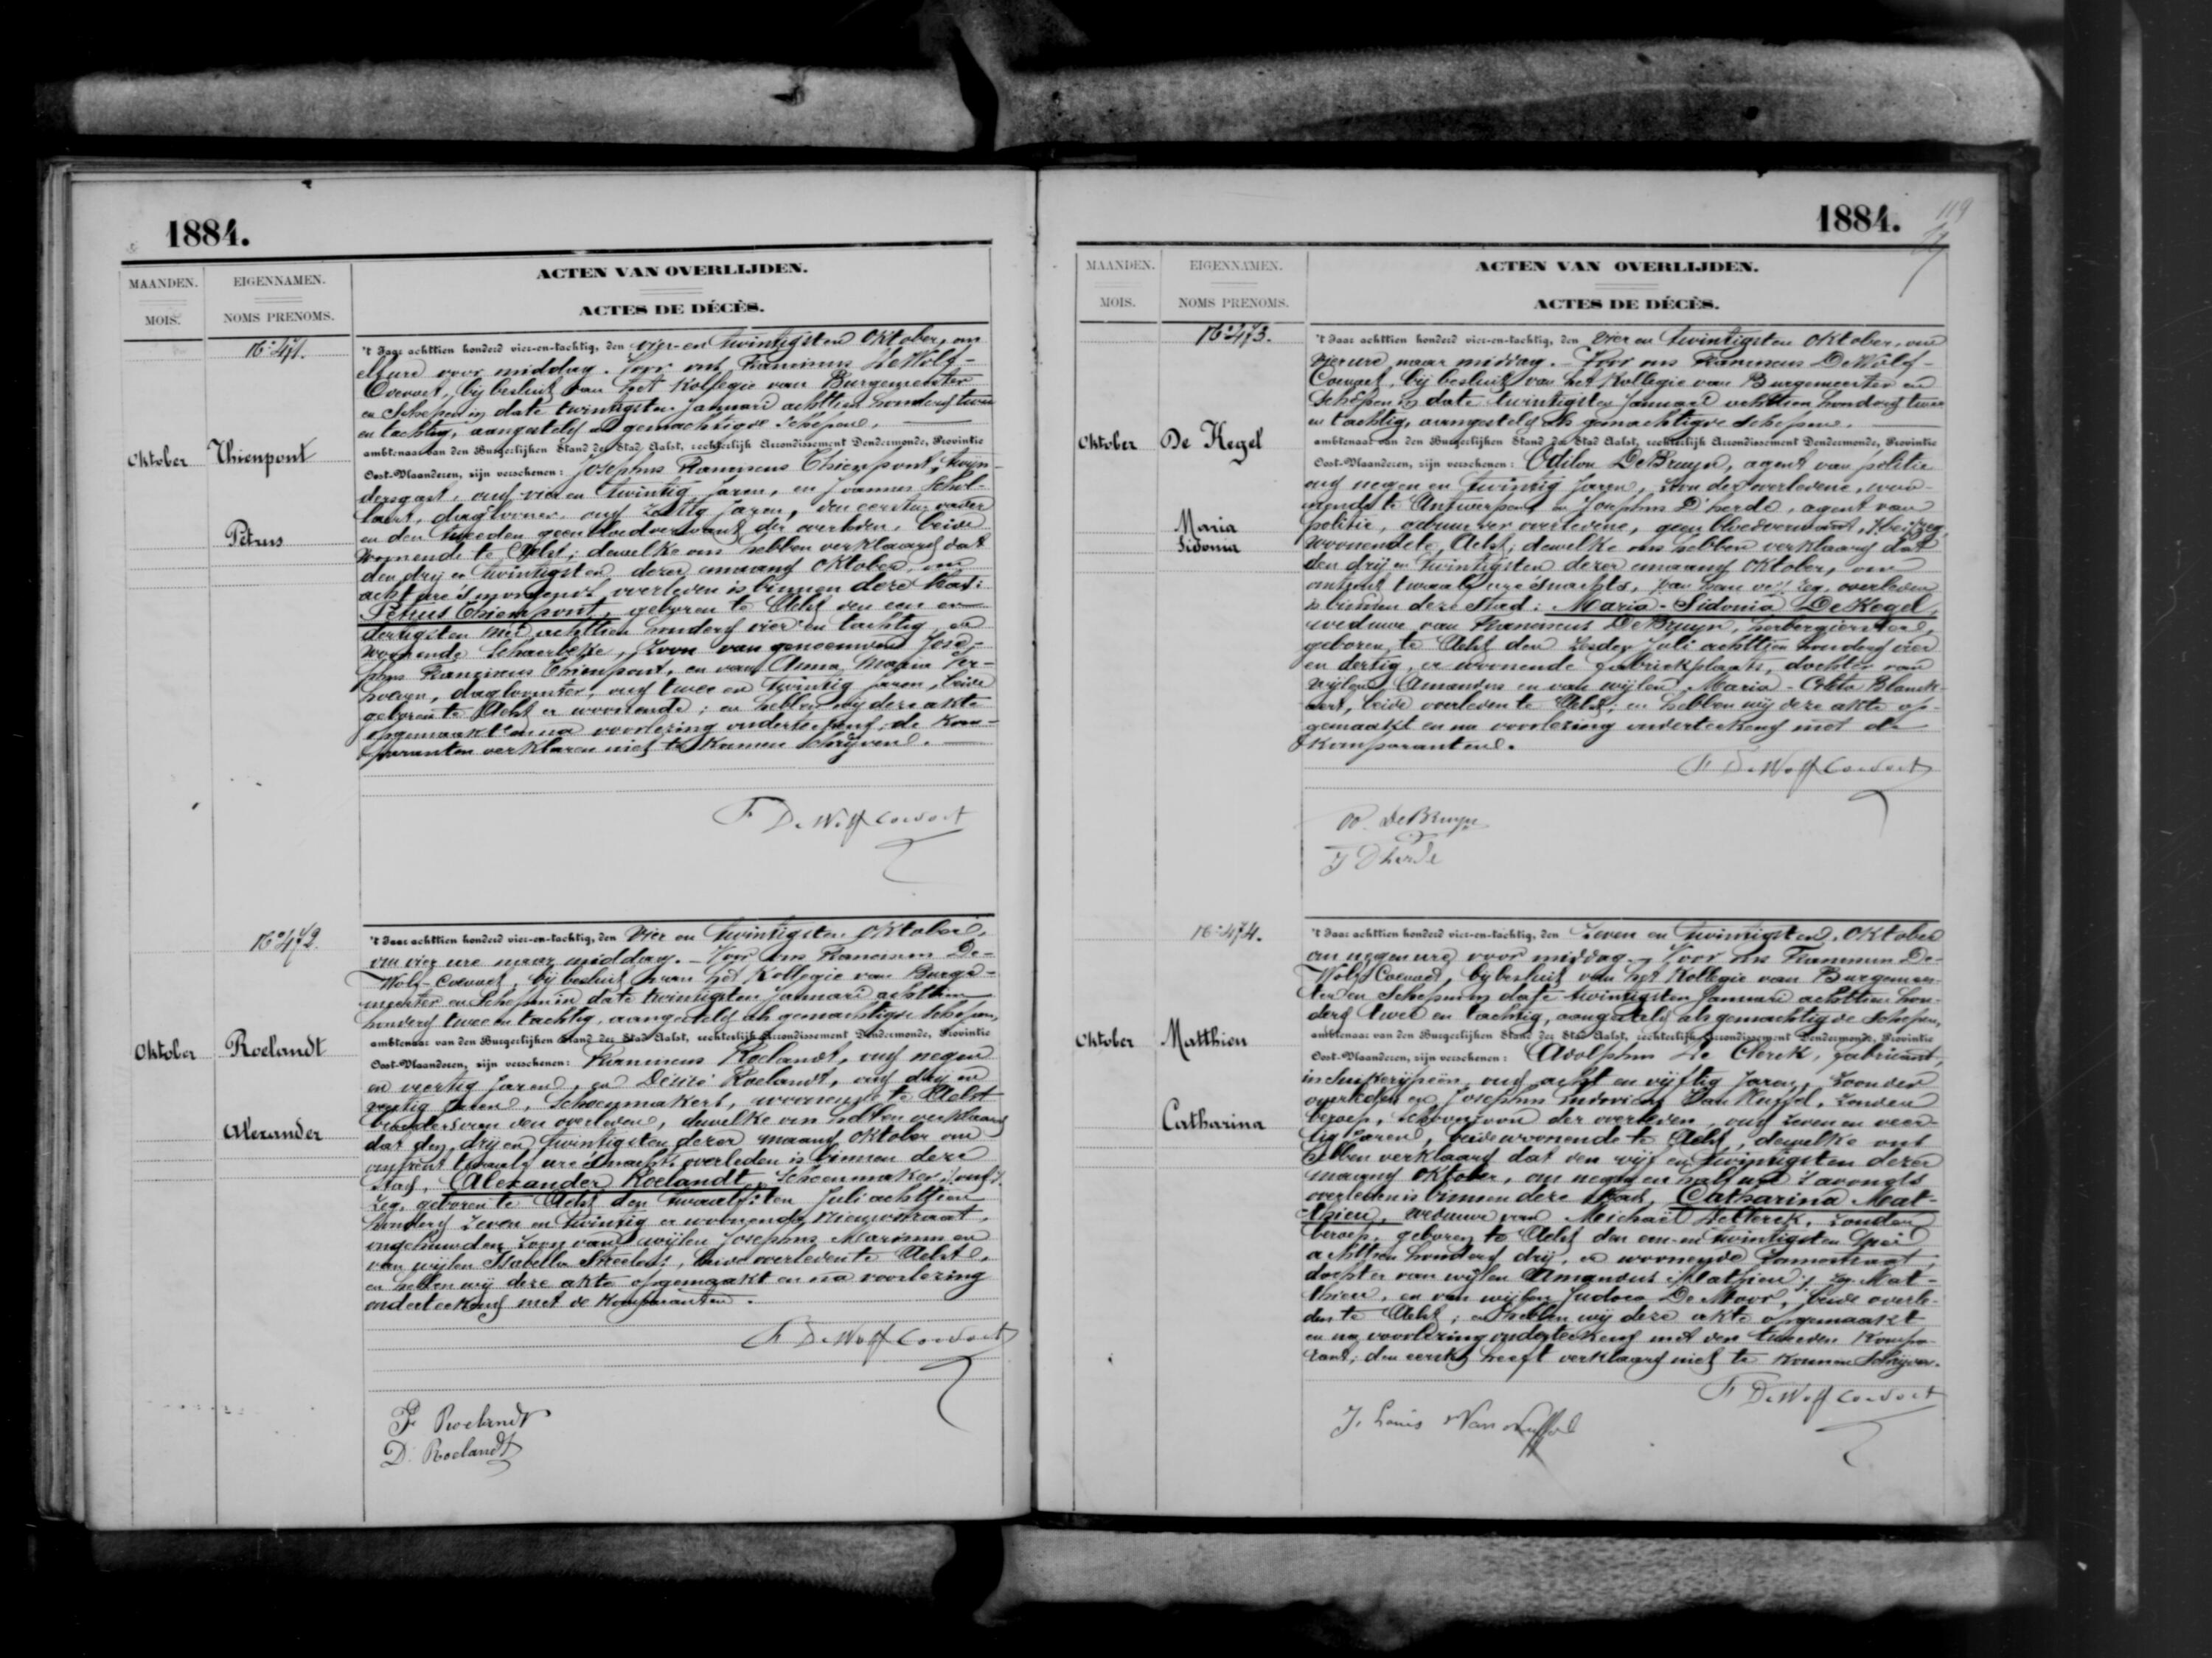 1884.
MAANDEN.
MOIS.
EIGENNAMEN.
NOMS PRENOMS.
ACTEN VAN OVERLIJDEN.
ACTES DE DÉCÈS.
No 471.
Oktober
Thienpont
Petrus
't Jaar achttien honderd vier-en-tachtig, den vier-en twintigsten Oktober, om
elf ure voor middag. Voor ons Franciscus De Wolf-
Coevoet, bij besluit van het Kollegie van Burgemeester
en Schepen in date twintigsten Januari achttien honderd twee
en tachtig, aangesteld als gemachtigde Schepene,
ambtenaar van den Burgerlijken Stand der Stad Aalst, rechterlijk Arrondissement Dendermonde, Provintie
Oost-Vlaanderen, zijn verschenen: Josephus Franciscus Thienpont, twijn-
dersgast, oud vier en twintig jaren, en Joannes
daglooner, oud jaren, den eersten vader
en den tweeden geen bloedverwant der overleden, beide
woonende te Aelst; dewelke ons hebben verklaard dat
den drij en twintigsten dezer maand Oktober, om
acht ure 's morgends overleden is binnen deze Stad:
Petrus Thienpont, geboren te Aelst den een en
dertigsten Mei achttien honderd vier en tachtig, en
woonende Schaerbeke, zoon van genoemden Jose-
phus Franciscus Thienpont, en van Anna Maria
daglooster, oud twee en twintig jaren, beide
geboren te Aelst en woonende; en hebben wij deze akte
opgemaakt en na voorlezing onderteekend; de Kom-
paranten verklaren niet te kunnen schrijven.
F. De Wolf Coevoet
No 472.
Oktober
Roelandt
Alexander
't Jaar achttien honderd vier-en-tachtig, den vier en twintigsten Oktober,
om vier ure naar middag. - Voor ons Franciscus De-
Wolf-Coevoet, bij besluit van het Kollegie van Burge-
meester en Schepen in date twintigsten Januari achttien
honderd twee en tachtig, aangesteld als gemachtigde Schepen,
ambtenaar van den Burgerlijken Stand der Stad Aalst, rechterlijk Arrondissement Dendermonde, Provintie
Oost-Vlaanderen, zijn verschenen: Franciscus Roelandt, oud negen
en veertig jaren, en Désiré Roelandt, oud drij en
veertig jaren, Schoenmakers, woonende te Aelst
van den overleden, dewelke ons hebben verklaard
dat den drij en twintigsten dezer maand Oktober om
omtrent twaalf ure 's nachts overleden is binnen deze
Stad, Alexander Roelandt, Schoenmaker, oud
zeg, geboren te Aelst den twaalfsten Juli achttien
honderd zeven en twintig en woonende Nieuwstraat,
ongehuwden zoon van wijlen Josephus Marinus en
van wijlen Isabella beide overleden te Aelst,
en hebben wij deze akte opgemaakt en na voorlezing
onderteekend met de Komparanten.
F. De Wolf Coevoet
F. Roelandt
D. Roelandt
1884.
119
MAANDEN.
MOIS.
EIGENNAMEN.
NOMS PRENOMS.
ACTEN VAN OVERLIJDEN.
ACTES DE DÉCÈS.
No 473.
Oktober
De Kegel
Maria
Sidonia
't Jaar achttien honderd vier-en-tachtig, den vier en twintigsten Oktober, om
vier ure naar middag. - Voor ons Franciscus De Wolf-
Coevoet, bij besluit van het Kollegie van Burgemeester en
Schepen in date twintigsten Januari achttien honderd twee
en tachtig, aangesteld als gemachtigde Schepene.
ambtenaar van den Burgerlijken Stand der Stad Aalst, rechterlijk Arrondissement Dendermonde, Provintie
Oost-Vlaanderen, zijn verschenen: Odilon De Bruyn, agent van politie
oud negen en twintig jaren, zoon der overledene, woo-
nende te Antwerpen en Josephus D'herde, agent van
politie, der overledene, geen bloedverwant,
woonende te Aelst; dewelke ons hebben verklaard dat
den drij en twintigsten dezer maand Oktober, om
omtrent twaalf ure 's nachts, zeg, overleden
is binnen deze Stad: Maria-Sidonia De Kegel,
weduwe van Franciscus De Bruyn, herbergierster,
geboren te Aelst den zesden Juli achttien honderd vier
en dertig, en woonende Fabriekplaats, dochter van
wijlen Amandus en van wijlen Maria-Coleta Blanck-
aert, beide overleden te Aelst; en hebben wij deze akte op-
gemaakt en na voorlezing onderteekend met de
Komparanten.
F. De Wolf Coevoet
De Bruyn
J Dherde
No 474.
Oktober
Matthieu
Catharina
't Jaar achttien honderd vier-en-tachtig, den zeven en twintigsten Oktober
om negen ure voor middag. - Voor ons Franciscus De-
Wolf Coevoet, bij besluit van het Kollegie van Burgemees-
ter en Schepen in date twintigsten Januari achttien hon-
derd twee en tachtig, aangesteld als gemachtigde Schepen,
ambtenaar van den Burgerlijken Stand der Stad Aalst, rechterlijk Arrondissement Dendermonde, Provintie
Oost-Vlaanderen, zijn verschenen: Adolphus De Clerck, fabricant,
in oud acht en vijftig jaren, zoon der
overleden en Josephus Ludovicus Van Nuffel, zonder
beroep, schoonzoon der overleden, oud zeven en veer-
tig jaren, beide woonende te Aelst, dewelke ons
hebben verklaard dat den vijf en twintigsten dezer
maand Oktober, om negen en half ure 's avonds
overleden is binnen deze Stad, Catharina Mat-
thieu, weduwe van Michaël De Clerck, zonder
beroep, geboren te Aelst den een-en twintigsten
achttien honderd drij, en woonende
dochter van wijlen Amandus Mathieu, zeg Mat-
thieu, en van wijlen Judoca De Moor, beide overle-
den te Aelst; en hebben wij deze akte opgemaakt
en na voorlezing onderteekend met den tweeden Kompa-
rant; den eersten heeft verklaard niet te kunnen schrijven.
F. De Wolf Coevoet
J. Louis Van Nuffel